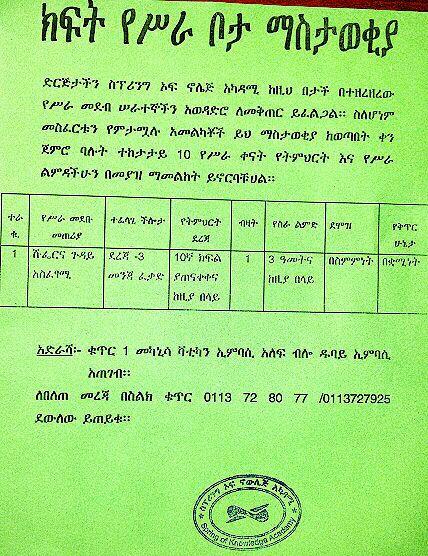 ክፍት የሥራ ቦታ ማስታወቂያ
ድርጅታችን ስፕሪንግ ኦፍ ኖሌጅ አካዳሚ ከዚህ በታች በተዘረዘረው
የሥራ መደብ ሠራተኛችን አወዳድሮ ለመቅጠር ይፈልጋል፡፡ ስለሆነም
መስፈርቱን የምታሟሉ አመልካቾች ይህ ማስታወቂያ ከወጣበት ቀን
ጀምሮ ባሉት ተከታታይ 10 የሥራ ቀናት የትምህርት እና የሥራ
ልምዳችሁን በመያዝ ማመልከት ይኖርባቸሀል፡፡
ተራ ቁ. የሥራ መደቡ መጠሪያ ተፈላጊ ችሎታ የትምህርት ደረጃ ብዛት የስራ ልምድ ደሞዝ የቅጥር ሁኔታ
1 ሹፌርና ጉዳይ አስፈፃሚ ደረጃ -3 መንጃ ፈቃድ 10ኛ ክፍል ያጠናቀቀና ከዚያ በላይ 1 3 ዓመትና ከዚያ በላይ በስምምነት በቋሚነት
አድራሻ፡- ቁጥር 1 መካኒሳ ቫቲካን ኢምባሲ አለፍ ብሎ ዱባይ ኢምባሲ
አጠገብ፡፡
ለበለጠ መረጃ በስልክ ቁጥር 0113 72 80 77 /0113727925
ደውለው ይጠይቁ፡፡
ስፕሪንግ ኦፍ ናውሌጅ አካዳሚ
Spring of Knowledge Academy